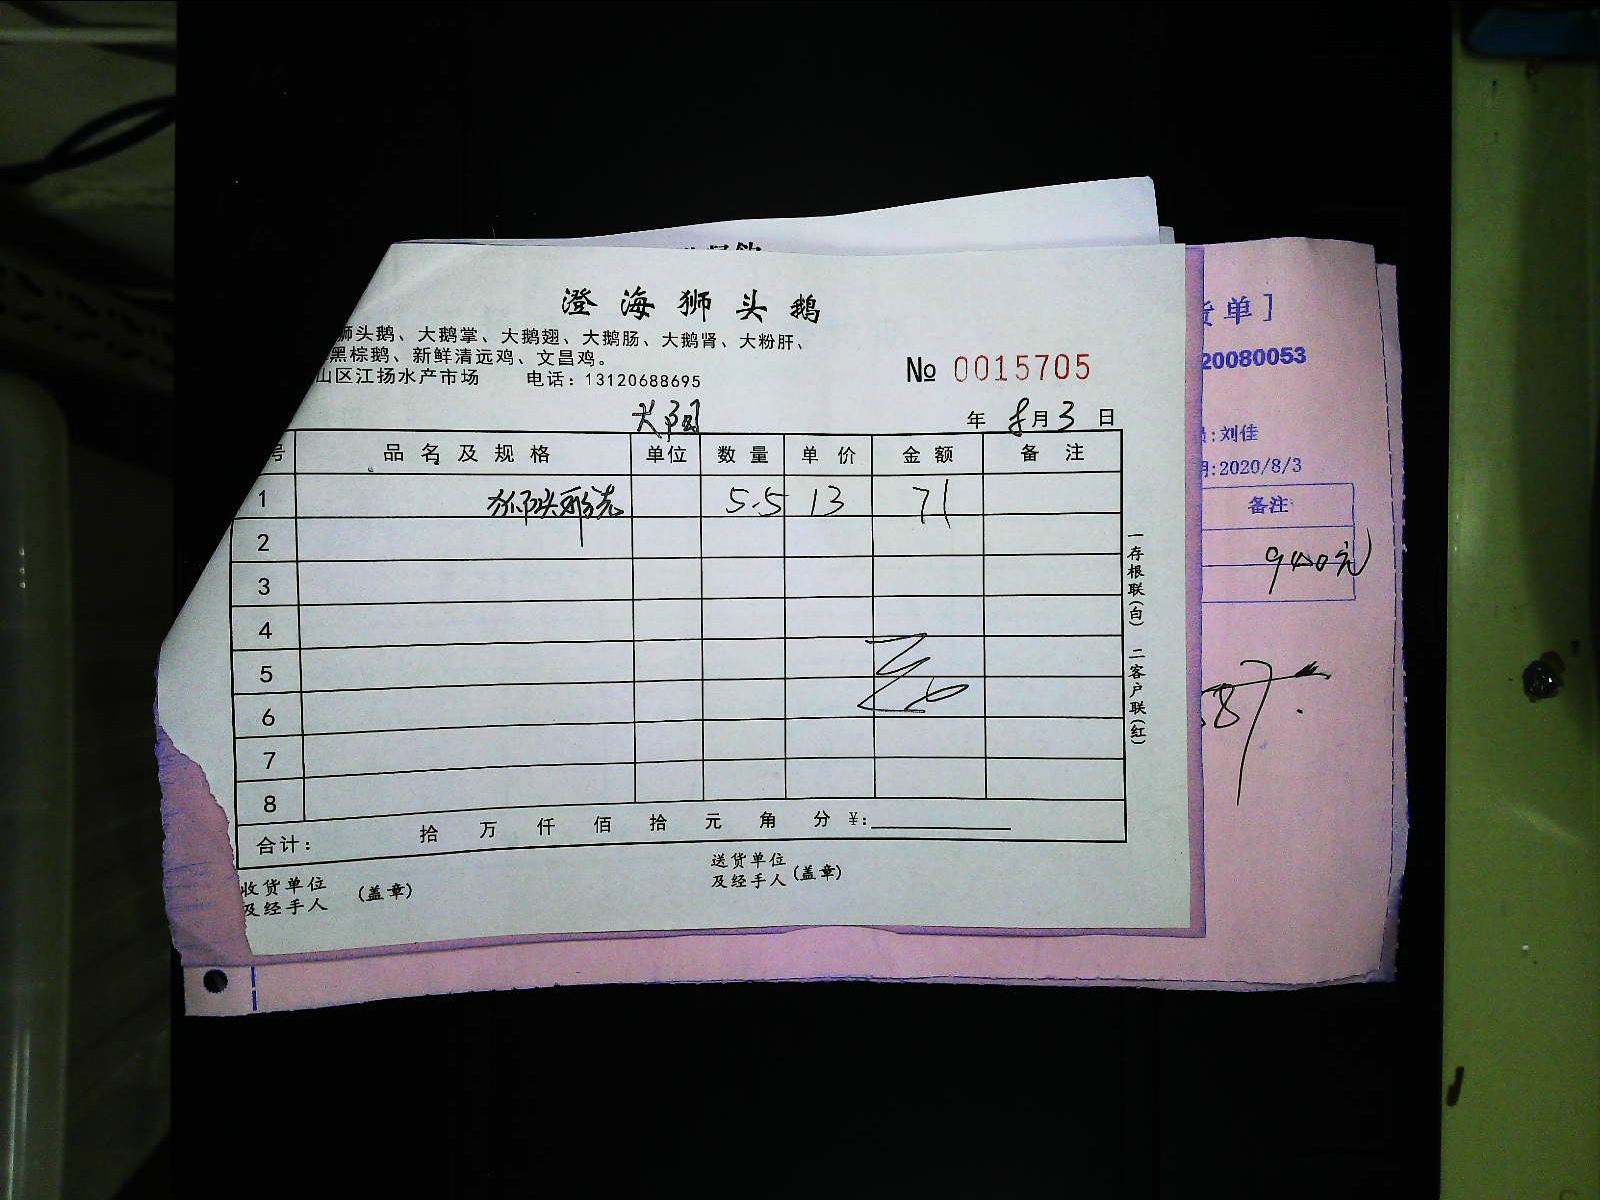 澄海狮头鹅
狮头鹅、大鹅掌、大鹅翅、大鹅肠、大鹅肾、大粉肝、
黑棕鹅、新鲜清远鸡、文昌鸡。
山区江扬水产市场 电话：13120688695
№ 0015705
年 8月3日
号 品名及规格 单位 数量 单价 金额 备注
1 5.5 13 71
2
3
4
5
6
7
8
合计： 拾 万 仟 佰 拾 元 角 分 ¥：
收货单位 (盖章)
及经手人
送货单位 (盖章)
及经手人
一存根联(白) 二客户联(红)
货单]
20080053
:刘佳
:2020/8/3
备注
940元